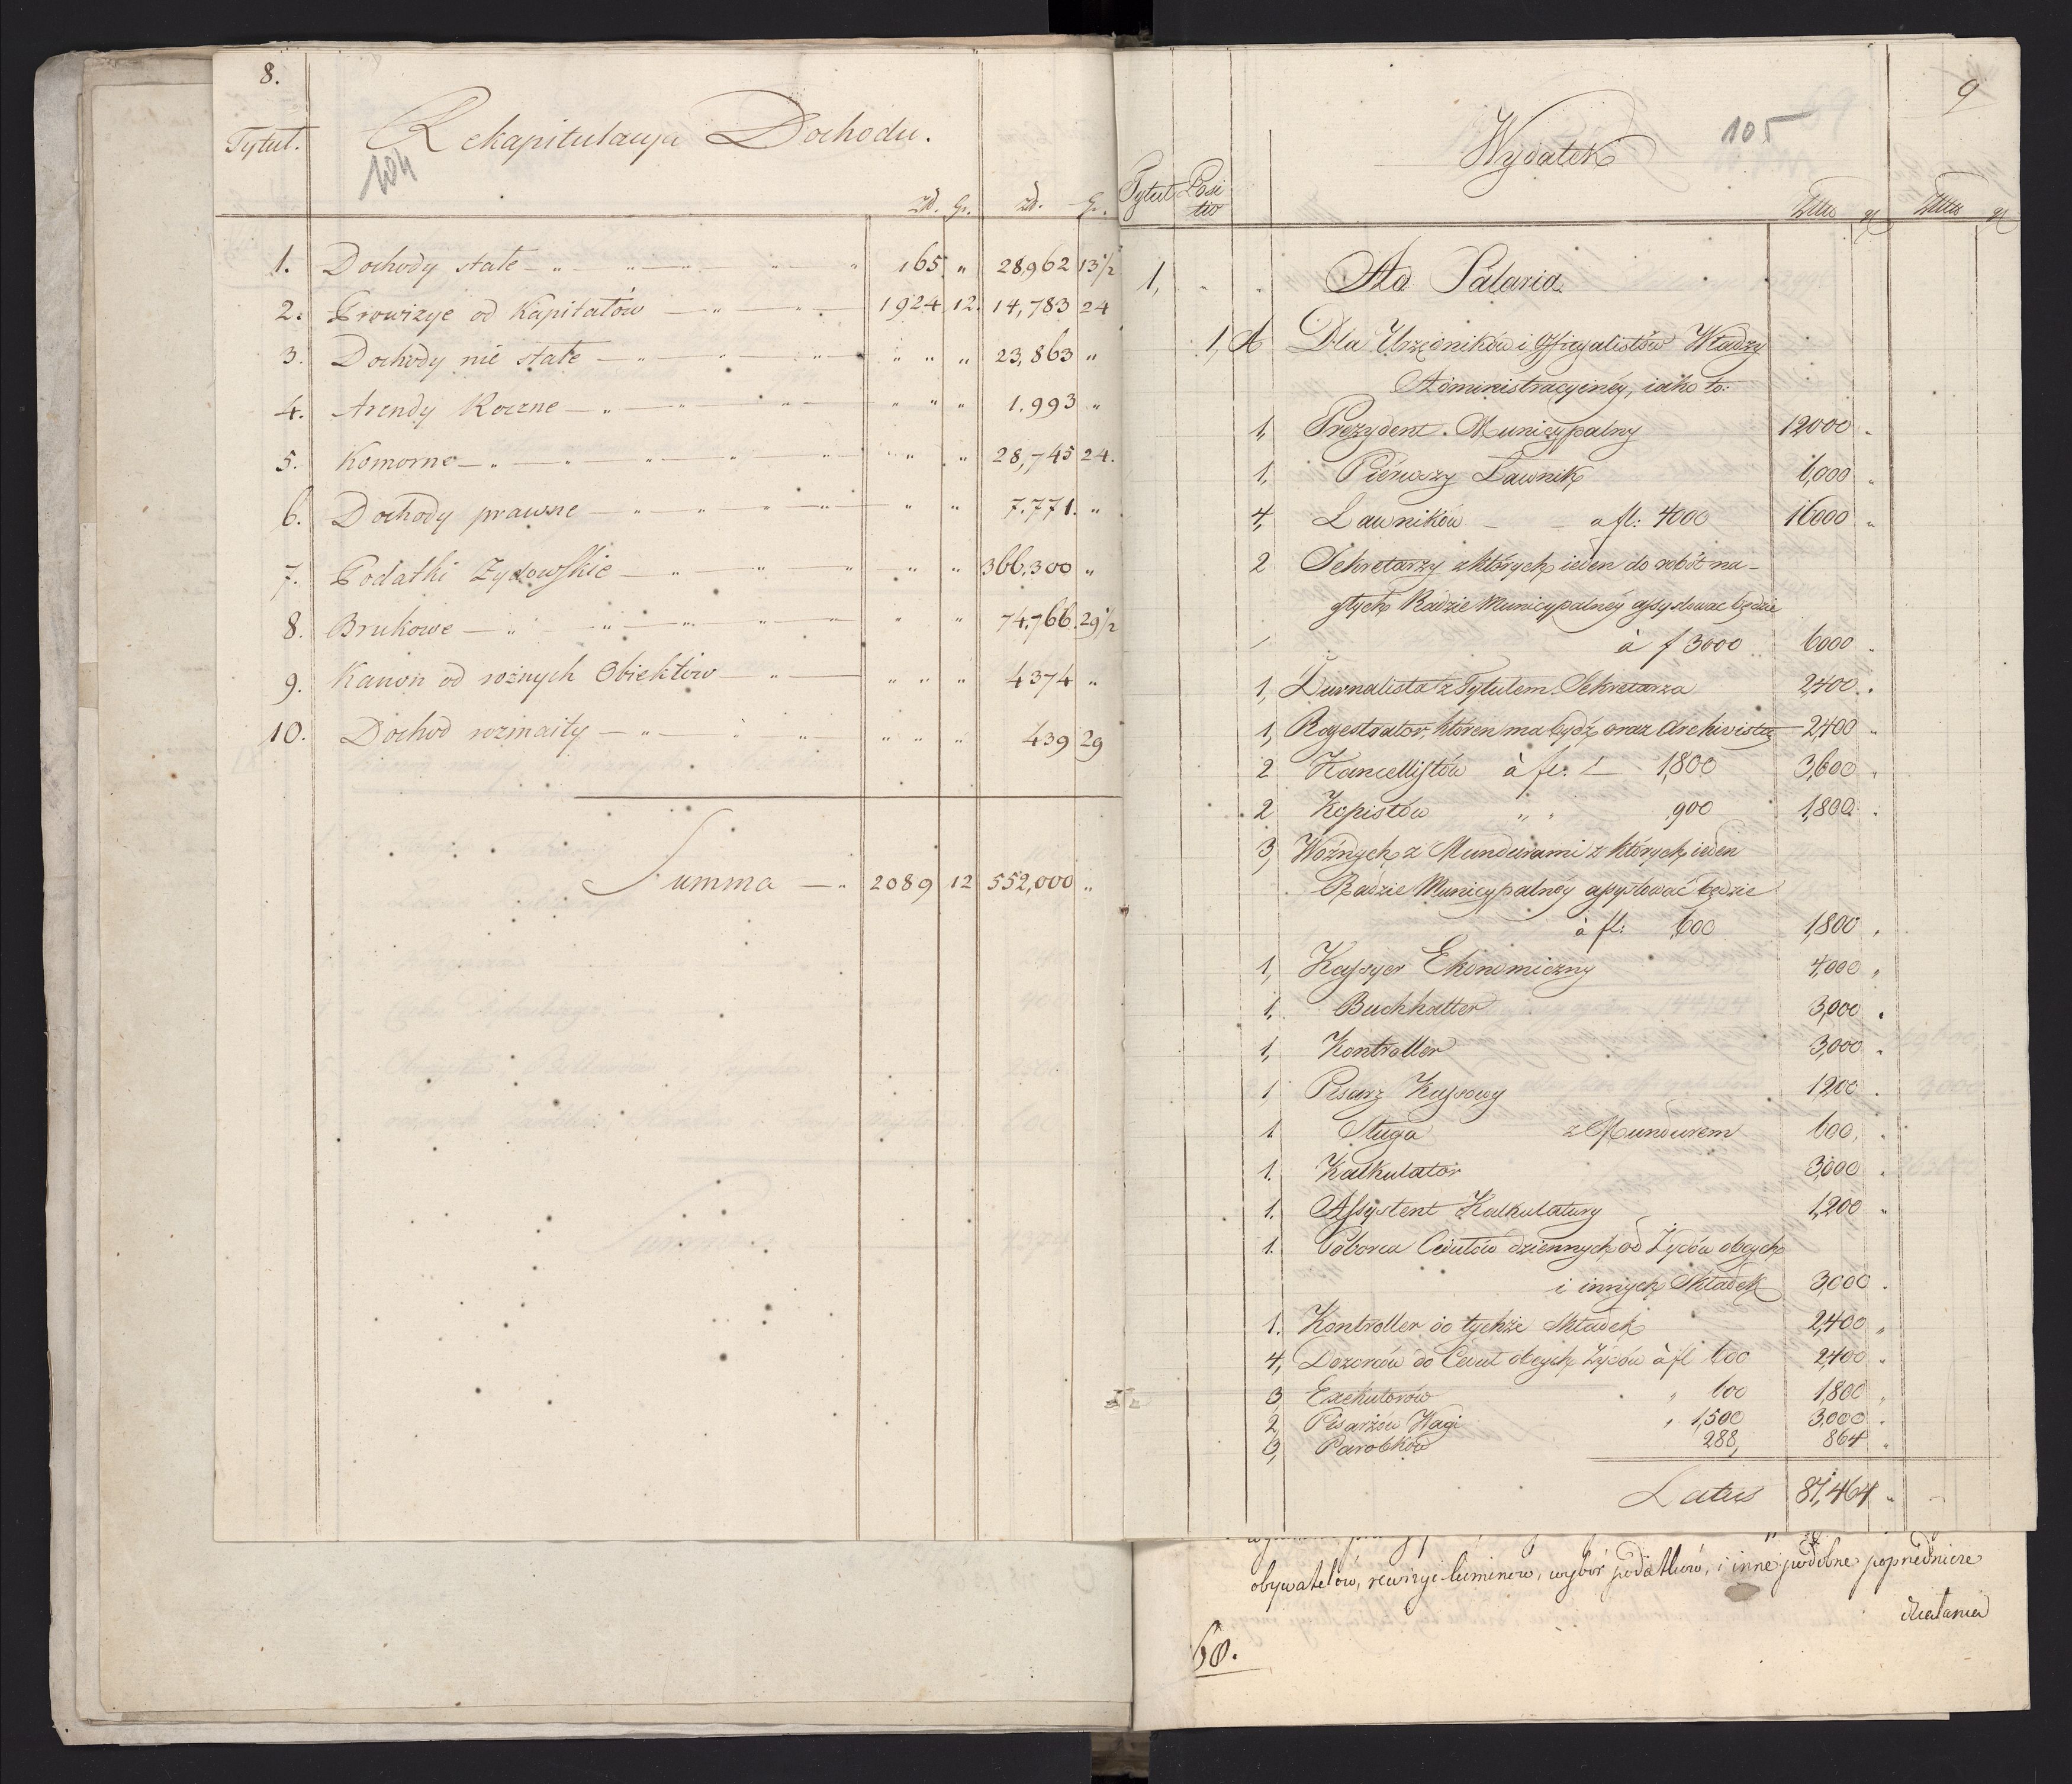 8.
Tytuł.
Rekapitulacya Dochodu.
104
Zł. Gr. Zł. Gr.
1. Dochody stałe — „ — „ — „ — „ 165 „ 28,962 13½
2. Prowizye od Kapitałów — „ — „ — 1924 12. 14,783 24
3. Dochody nie stałe — „ — „ — „ „ „ 23,863 „
4. Arendy Roczne — „ — „ — „ — „ „ „ 1.993 „
5. Komorne — „ — „ — „ — „ — „ „ „ 28,745 24.
6. Dochody prawne — „ — „ — „ — „ „ 7.771. „
7. Podatki Zydowskie — „ — „ — „ — „ „ 366,300 „
8. Brukowe — „ — „ — „ — „ — „ „ 74,766. 29½
9. Kanon od rożnych Obiektów — „ — „ „ „ 4374 „
10. Dochod rozmaity — „ — „ — „ — „ „ „ 439 29
Summa — „ 2089 12 552,000 „
9
105
Wydatek
Tytuł Posi
tio
Złłłs gr Złłłs gr
1, „ „ Ad Salaria.
1, A Dla Urzędników i Officyalistów Władzy
Administracyinéy, iako to:
1, Prezydent Municypalny 12000 „
1, Piérwszy Ławnik 6,000 „
4, Ławników — — a fl: 4000 16000 „
2 Sekretarzy z których ieden do robót na-
głych Radzie Municypalnéy assystować będzie
à f 3000 6000 „
1, Durnalista z Tytułem Sekretarza 2400 „
1, Regestrator, któren ma bydź oraz Archivistą 2400 „
2 Kancellistów à fl: — 1,800 3,600 „
2 Kopistów „ „ 900 1,800 „
3, Woźnych z Mundurami z których ieden
Radzie Municypalnéy assystować będzie
à fl: 600 1,800 „
1, Kassyer Ekonomiczny 4,000 „
1, Buchhalter 3,000 „
1, Kontroller 3,000 „
1, Pisarz Kassowy 1200 „
1 Sługa z Mundurem 600, „
1. Kalkulator 3,000 „
1. Assystent Kalkulatury 1,200 „
1. Poborca Cedułów dziennych od Żydów obcych
i innych Składek 3,000 „
1. Kontroller do tychże Składek 2,400 „
4, Dozorców do Cedul obcych Żydów à fl 600 2,400 „
3, Exekutorów „ 600 1,800 „
2, Pisarzów Wagi „ 1,500 3,000 „
3, Parobków 288, 864 „
Latus 87,464 „ —
obywatelów, rewizye kominów, wybór podatków, i inne podobne poprzednicze
działania
60.